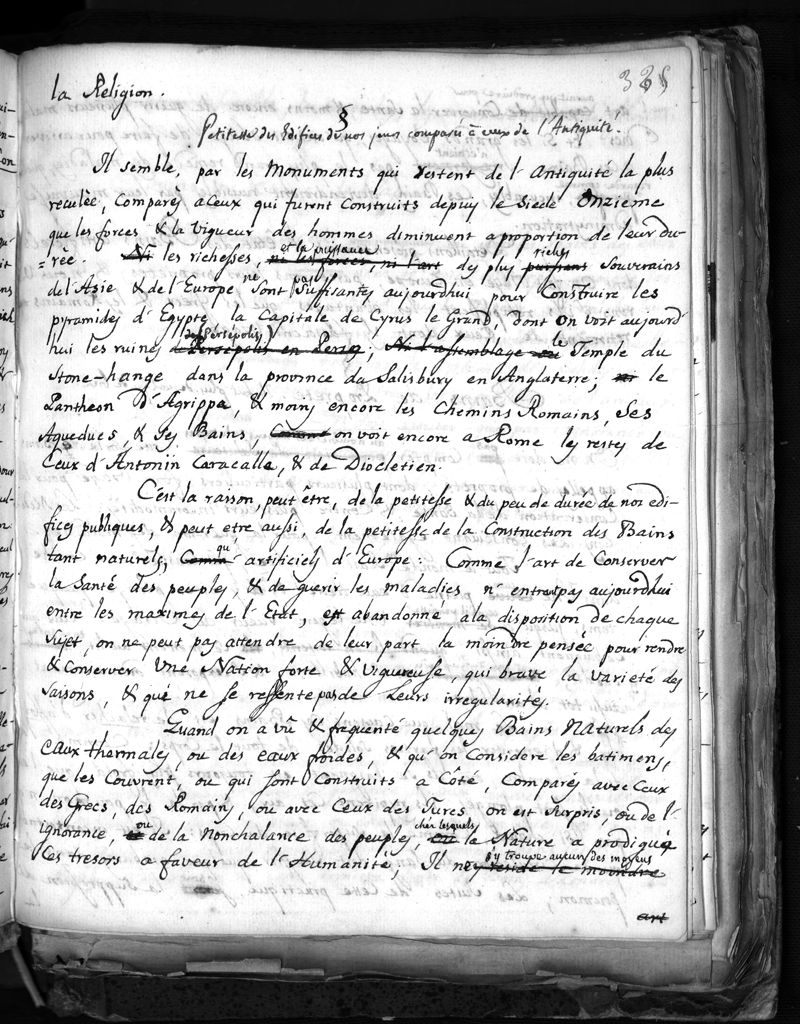 335
la Religion.
§
Petitesse des Edifices de nos jours comparés à ceux de l'Antiquité.
Il semble, par les Monuments qui restent de l'Antiquité la plus
reculée, Comparés a Ceux qui furent Construits depuis le Siecle Onzieme
que les forces & la Vigueur des hommes diminuent a proportion de leur du-
=rée. Ni les richesses, ni les forces, ni l'art et la puissance des plus puissans riches Souverains
de l'Asie & de l'Europe ne Sont pas Suffisantes aujourdhui pour Construire les
pyramides d'Egypte, la Capitale de Cyrus le Grand, dont on voit aujourd'
hui les ruines de Persepolis en Perse (de Persépolis); Ni l'assemblage du le Temple du
Stone-hange dans la province du Salisbury en Angleterre; ni le
Pantheon D'Agrippa, & moins encore les Chemins Romains, Ses
Aqueducs, & Ses Bains, Comme on voit encore a Rome les restes de
Ceux d'Antonin Caracalla, & de Diocletien.
C'est la raison, peut être, de la petitesse & du peu de durée de nos edi-
fices publiques, & peut etre aussi, de la petitesse de la Construction des Bains
tant naturels, Comme qu' artificiels d'Europe: Comme l'art de Conserver
la Santé des peuples, & de guerir les maladies, n'entrent pas aujourdhui
entre les maximes de l'Etat, est abandonné a la disposition de chaque
Sujet, on ne peut pas attendre de leur part la moindre pensée pour rendre
& Conserver Une Nation forte & Vigureuse, qui brave la varieté des
Saisons, & que ne se ressente pas de Leurs irregularités.
Quand on a vû & frequenté quelques Bains Naturels des
Eaux thermales, ou des eaux froides, & qu'on Considere les batimens,
que les Couvrent, ou qui sont Construits a Côté, Comparés avec Ceux
des Grecs, des Romains, ou avec Ceux des Turcs, on est Surpris, ou de l'
ignorance, ou de la Nonchalance des peuples, chés lesquels la Nature a prodigué
Ces tresors a faveur de l'Humanité; Il n'y reside le moindre s'y trouve aucun des moyens
art